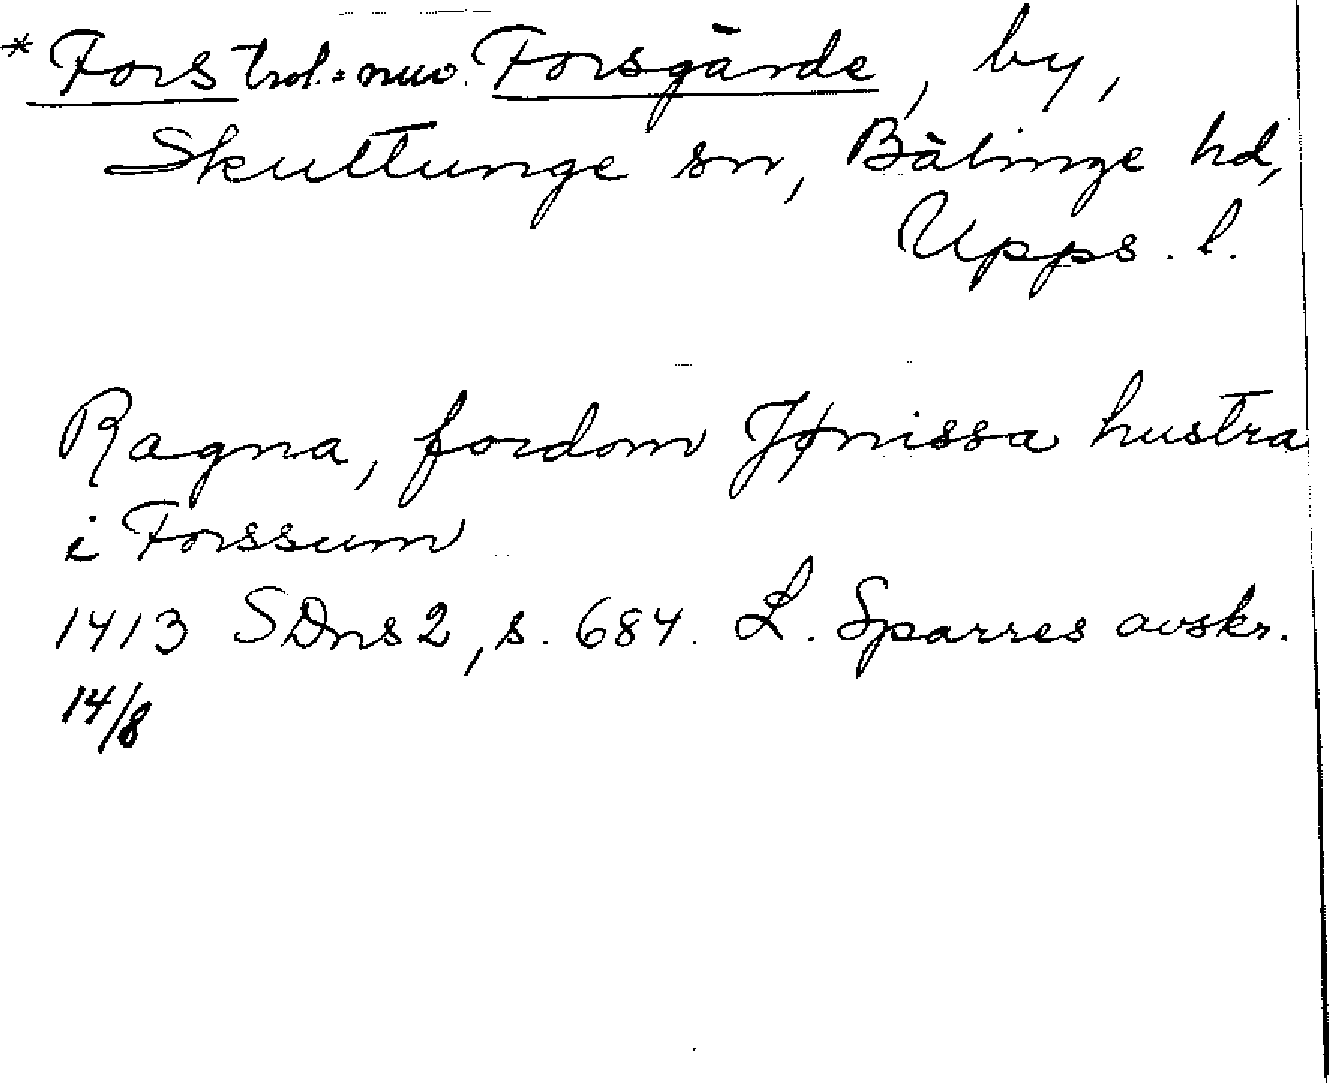 * Fors trol. = nuv. Forsgärde, by,
Skuttunge sn, Bälinge hd,
Upps. l.
Ragna, fordom Jønissa hustra
i Forssum
1413 SDns 2, s. 684. L. Sparres avskr.
14/8